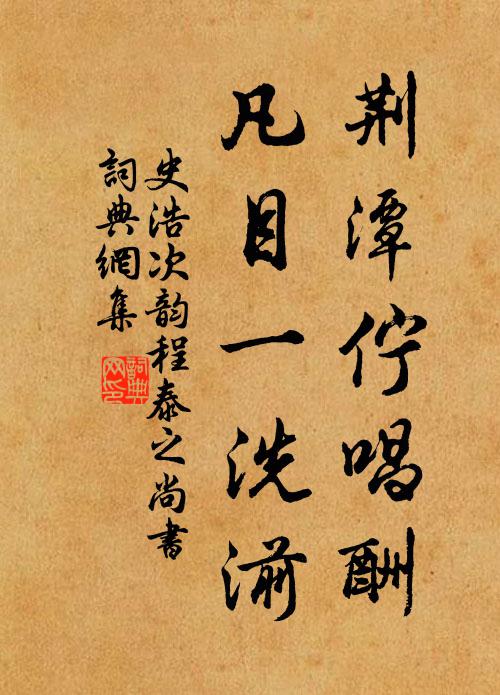 荆潭佇唱酬
凡目一洗湔
史浩次韵程泰之尚書
詞典網集
詞典
网印